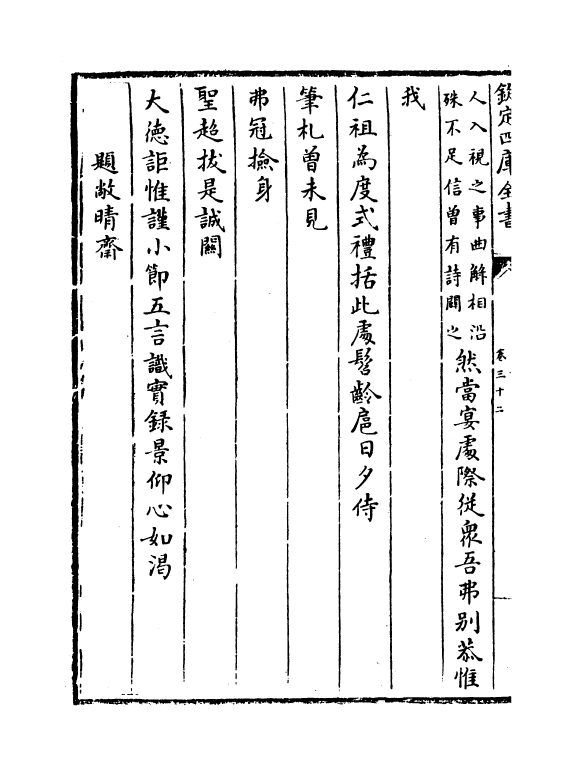 欽定四庫全書
卷三十二
人入視之事曲解相沿
殊不足信曾有詩闢之
然當宴處際從衆吾弗别恭惟
我
仁祖為度式禮括此處髫齡扈日夕侍
筆札曾未見
弗冠撿身
聖超拔是誠關
大徳詎惟謹小節五言識實録景仰心如渇
題敞晴齋